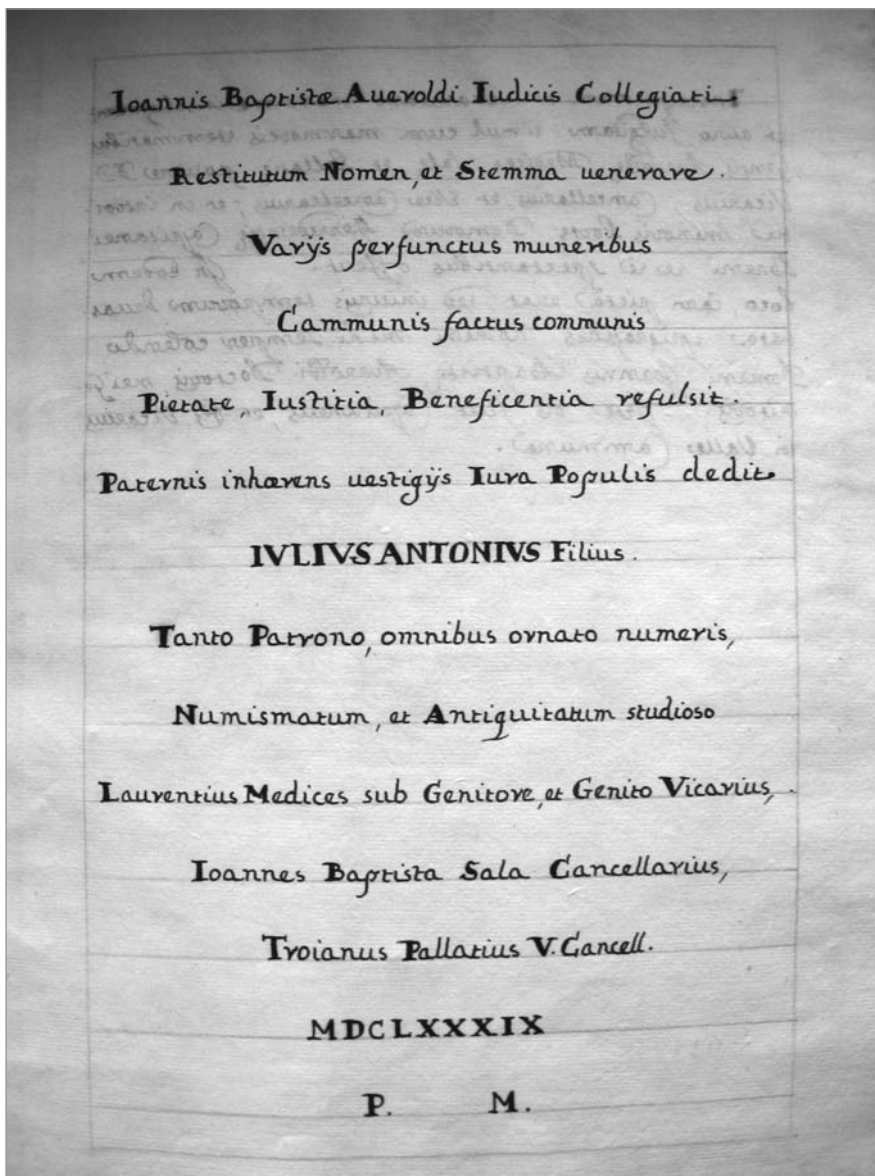 Ioannis Baptistæ Averoldi Iudicis Collegiati
Restitutum Nomen, et Stemma uenerare.
Varijs perfunctus muneribus
Cammunis factus communis
Pietate, Iustitia, Beneficentia refulsit.
Paternis inhærens uestigijs Iura Populis dedit
IVLIVS ANTONIVS Filius.
Tanto Patrono, omnibus ornato numeris,
Numismatum, et Antiquitatum studioso
Laurentius Medices sub Genitore, et Genito Vicarius,
Ioannes Baptista Sala Cancellarius,
Troianus Pallatius V. Cancell.
MDCLXXXIX
P. M.